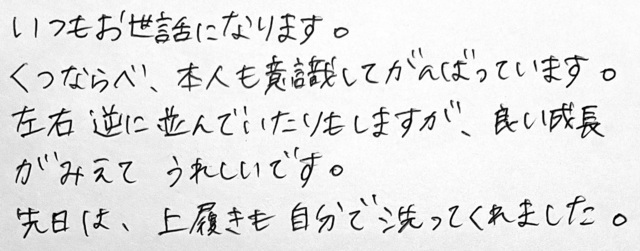 いつもお世話になります。
くつならべ、本人も意識してがんばっています。
左右逆に並んでいたりもしますが、良い成長
がみえて うれしいです。
先日は、上履きも自分で洗ってくれました。